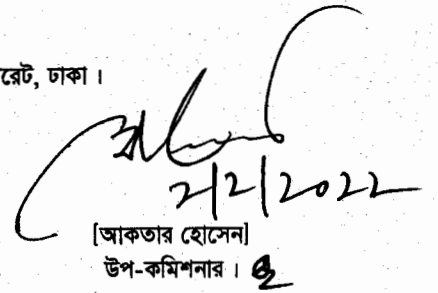 রেট, ঢাকা ।
2/2/2022
[আকতার হোসেন]
উপ-কমিশনার ।